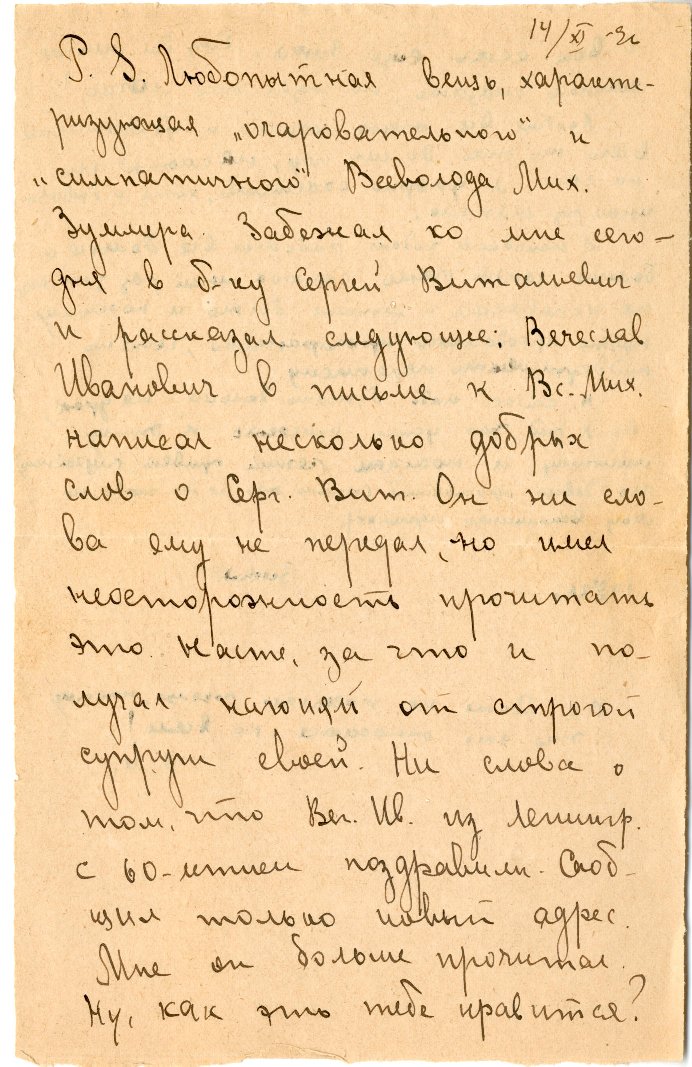 14/XI
P. S. Любопытная вещь, характе-
ризующая „очаровательного" и
„симпатичного" Всеволода Мих.
Зуммера. Забежал ко мне сего-
дня в б-ку Сергей Виталиевич
и рассказал следующее: Вечеслав
Иванович в письме к Вс. Мих.
написал несколько добрых
слов о Серг. Вит. Он ни сло-
ва ему не передал, но имел
неосторожность прочитать
это Насте, за что и по-
лучал нагоняй от строгой
супруги своей. Ни слова о
том, что Веч. Ив. из Ленингр.
с 60-летием поздравили. Сооб-
щил только новый адрес.
Мне он больше прочитал.
Ну, как это тебе нравится?